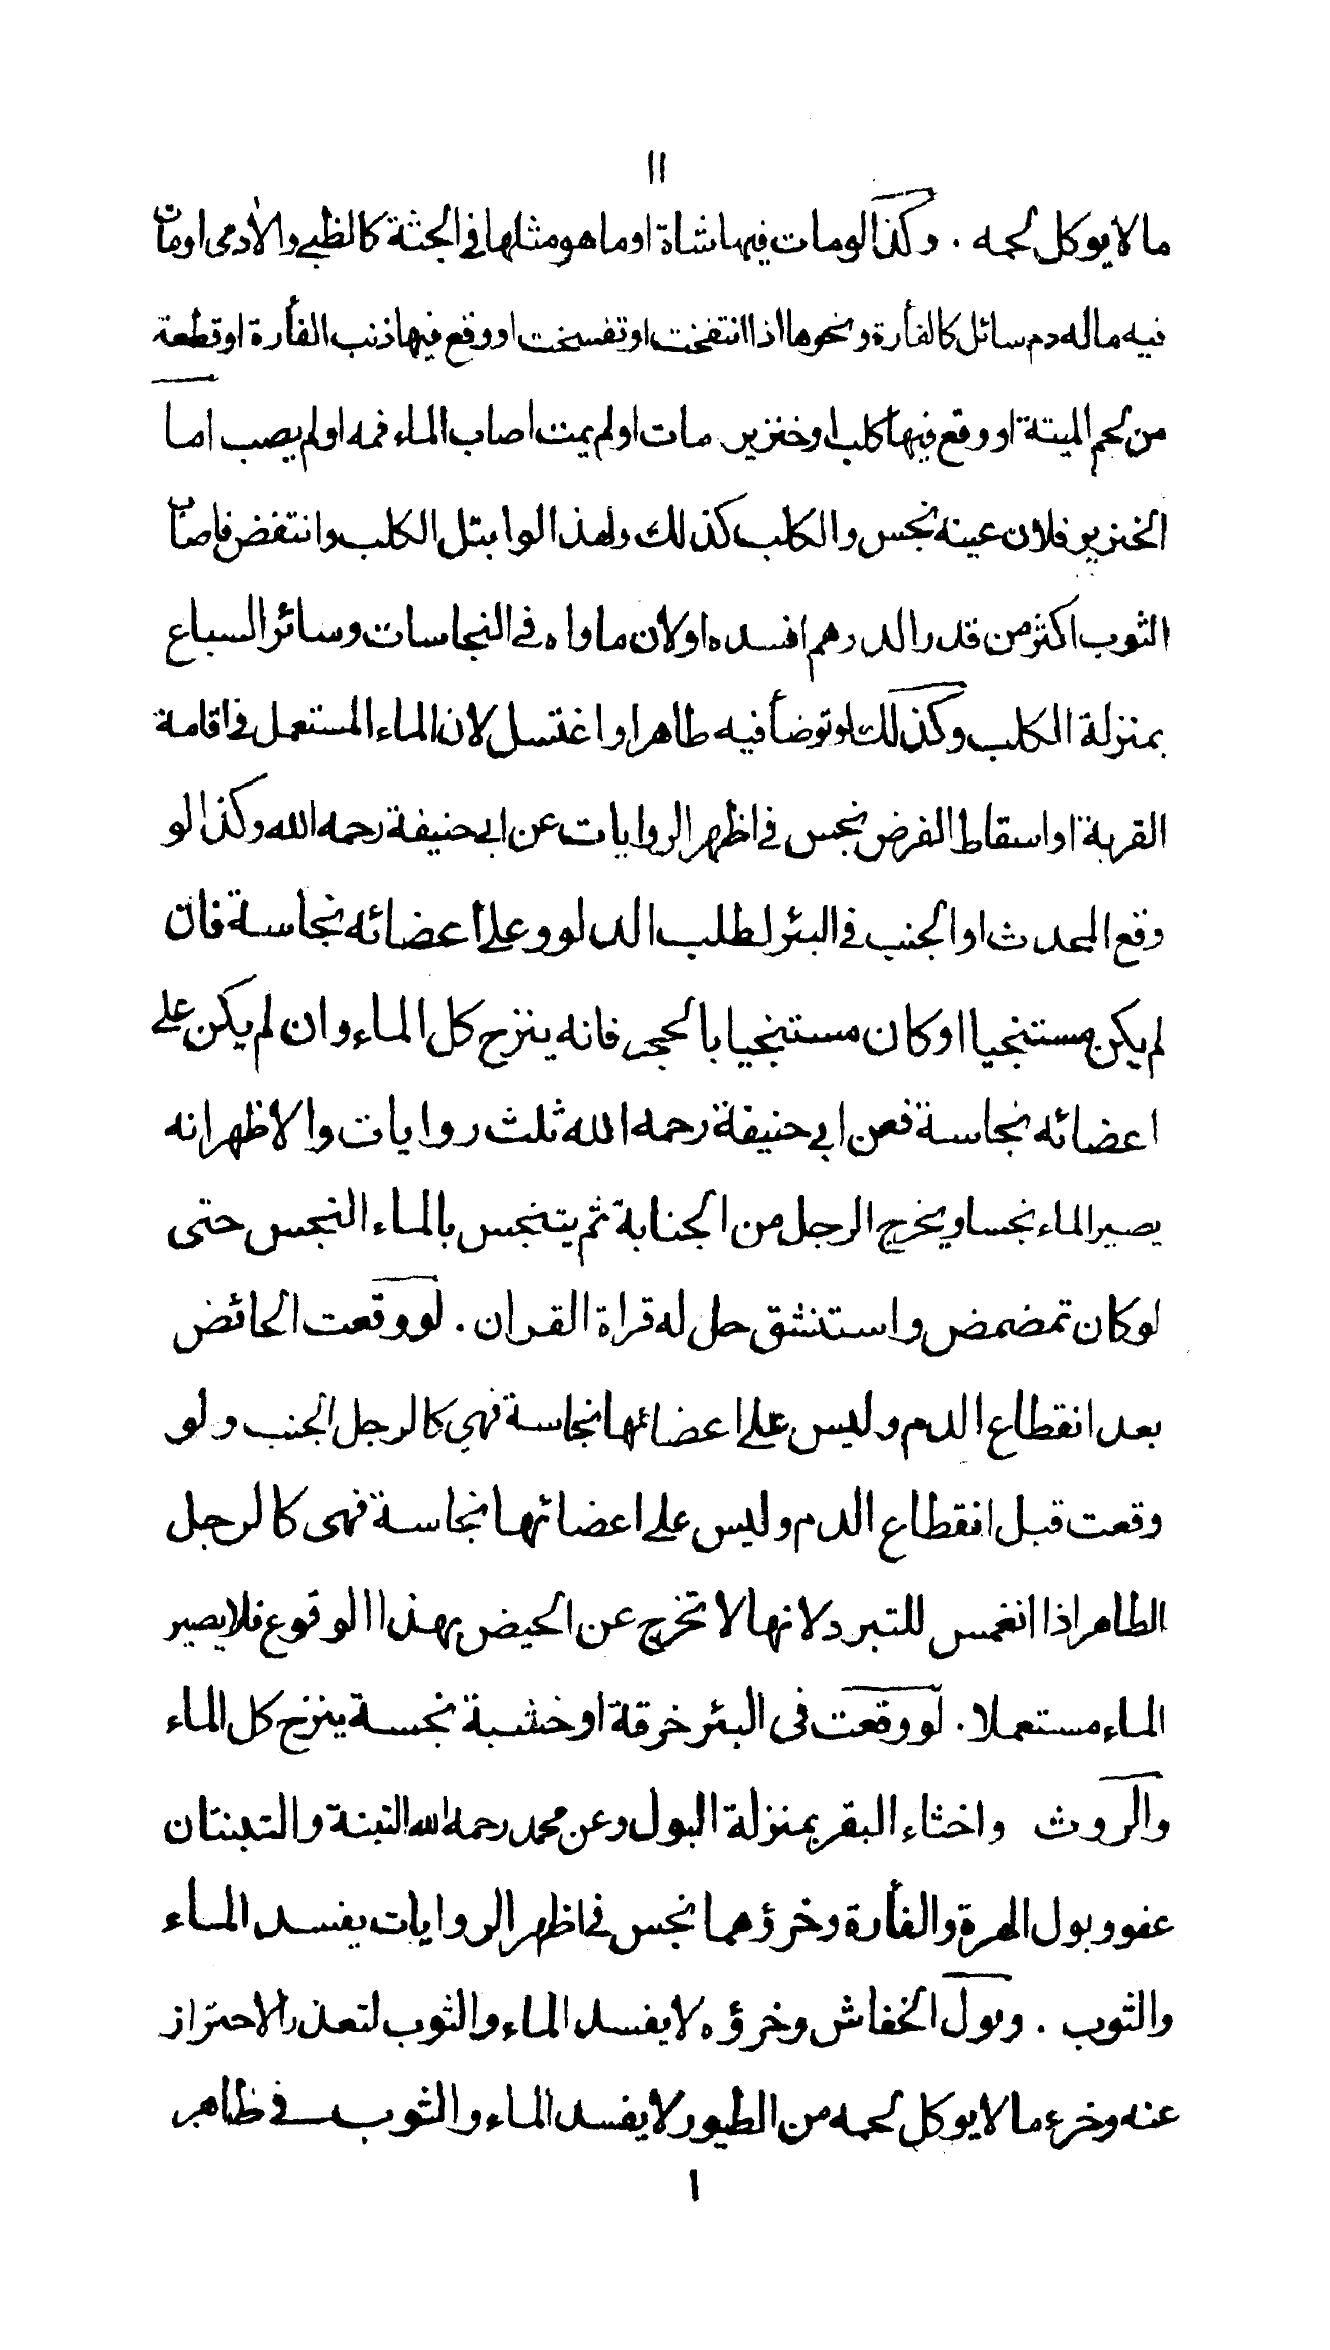 ١١
ما لا يوكل لحمه . وكذا لو مات فيها شاة او ما هو مثلها في الجثة كالظبي والادمى اومات
فيه ماله دم سائل كالفأرة ونحوها اذا انتفخت او تفسخت او وقع فيها ذنب الفأرة او قطعة
من لحم الميتة او وقع فيها كلب او خنزير مات او لم يمت اصاب الماء فمه او لم يصب اما
الخنزير فلان عينه نجس والكلب كذلك ولهذا لو ابتل الكلب وانتفض فاصاب
الثوب اكثر من قدر الدرهم افسده او لان ماواه في النجاسات وسائر السباع
بمنزلة الكلب وكذلك لو توضأ فيه طاهر او اغتسل لان الماء المستعمل في اقامة
القربة او اسقاط الفرض نجس في اظهر الروايات عن ابي حنيفة رحمه الله وكذا لو
وقع المحدث او الجنب في البئر لطلب الدلو وعلى اعضائه نجاسة فان
لم يكن مستنجيا او كان مستنجيا بالحجر فانه ينزح كل الماء وان لم يكن على
اعضائه نجاسة فعن ابي حنيفة رحمه الله ثلث روايات والاظهر انه
يصير الماء نجسا ويخرج الرجل من الجنابة ثم يتنجس بالماء النجس حتى
لو كان تمضمض واستنشق حل له قراة القران . لو وقعت الحائض
بعد انقطاع الدم وليس على اعضائها نجاسة فهي كالرجل الجنب ولو
وقعت قبل انقطاع الدم وليس على اعضائها نجاسة فهى كالرجل
الطاهر اذا انغمس للتبرد لانها لا تخرج عن الحيض بهذا الوقوع فلا يصير
الماء مستعملا . لو وقعت فى البئر خرقة او خشبة نجسة ينزح كل الماء
والروث واخثاء البقر بمنزلة البول وعن محمد رحمه الله التبنة والتبنتان
عفو وبول الهرة والفأرة وخرؤهما نجس في اظهر الروايات يفسد الماء
والثوب . وبول الخفاش وخرؤه لا يفسد الماء والثوب لتعذر الاحتراز
عنه وخرء ما لا يوكل لحمه من الطيور لا يفسد الماء والثوب في ظاهر
١